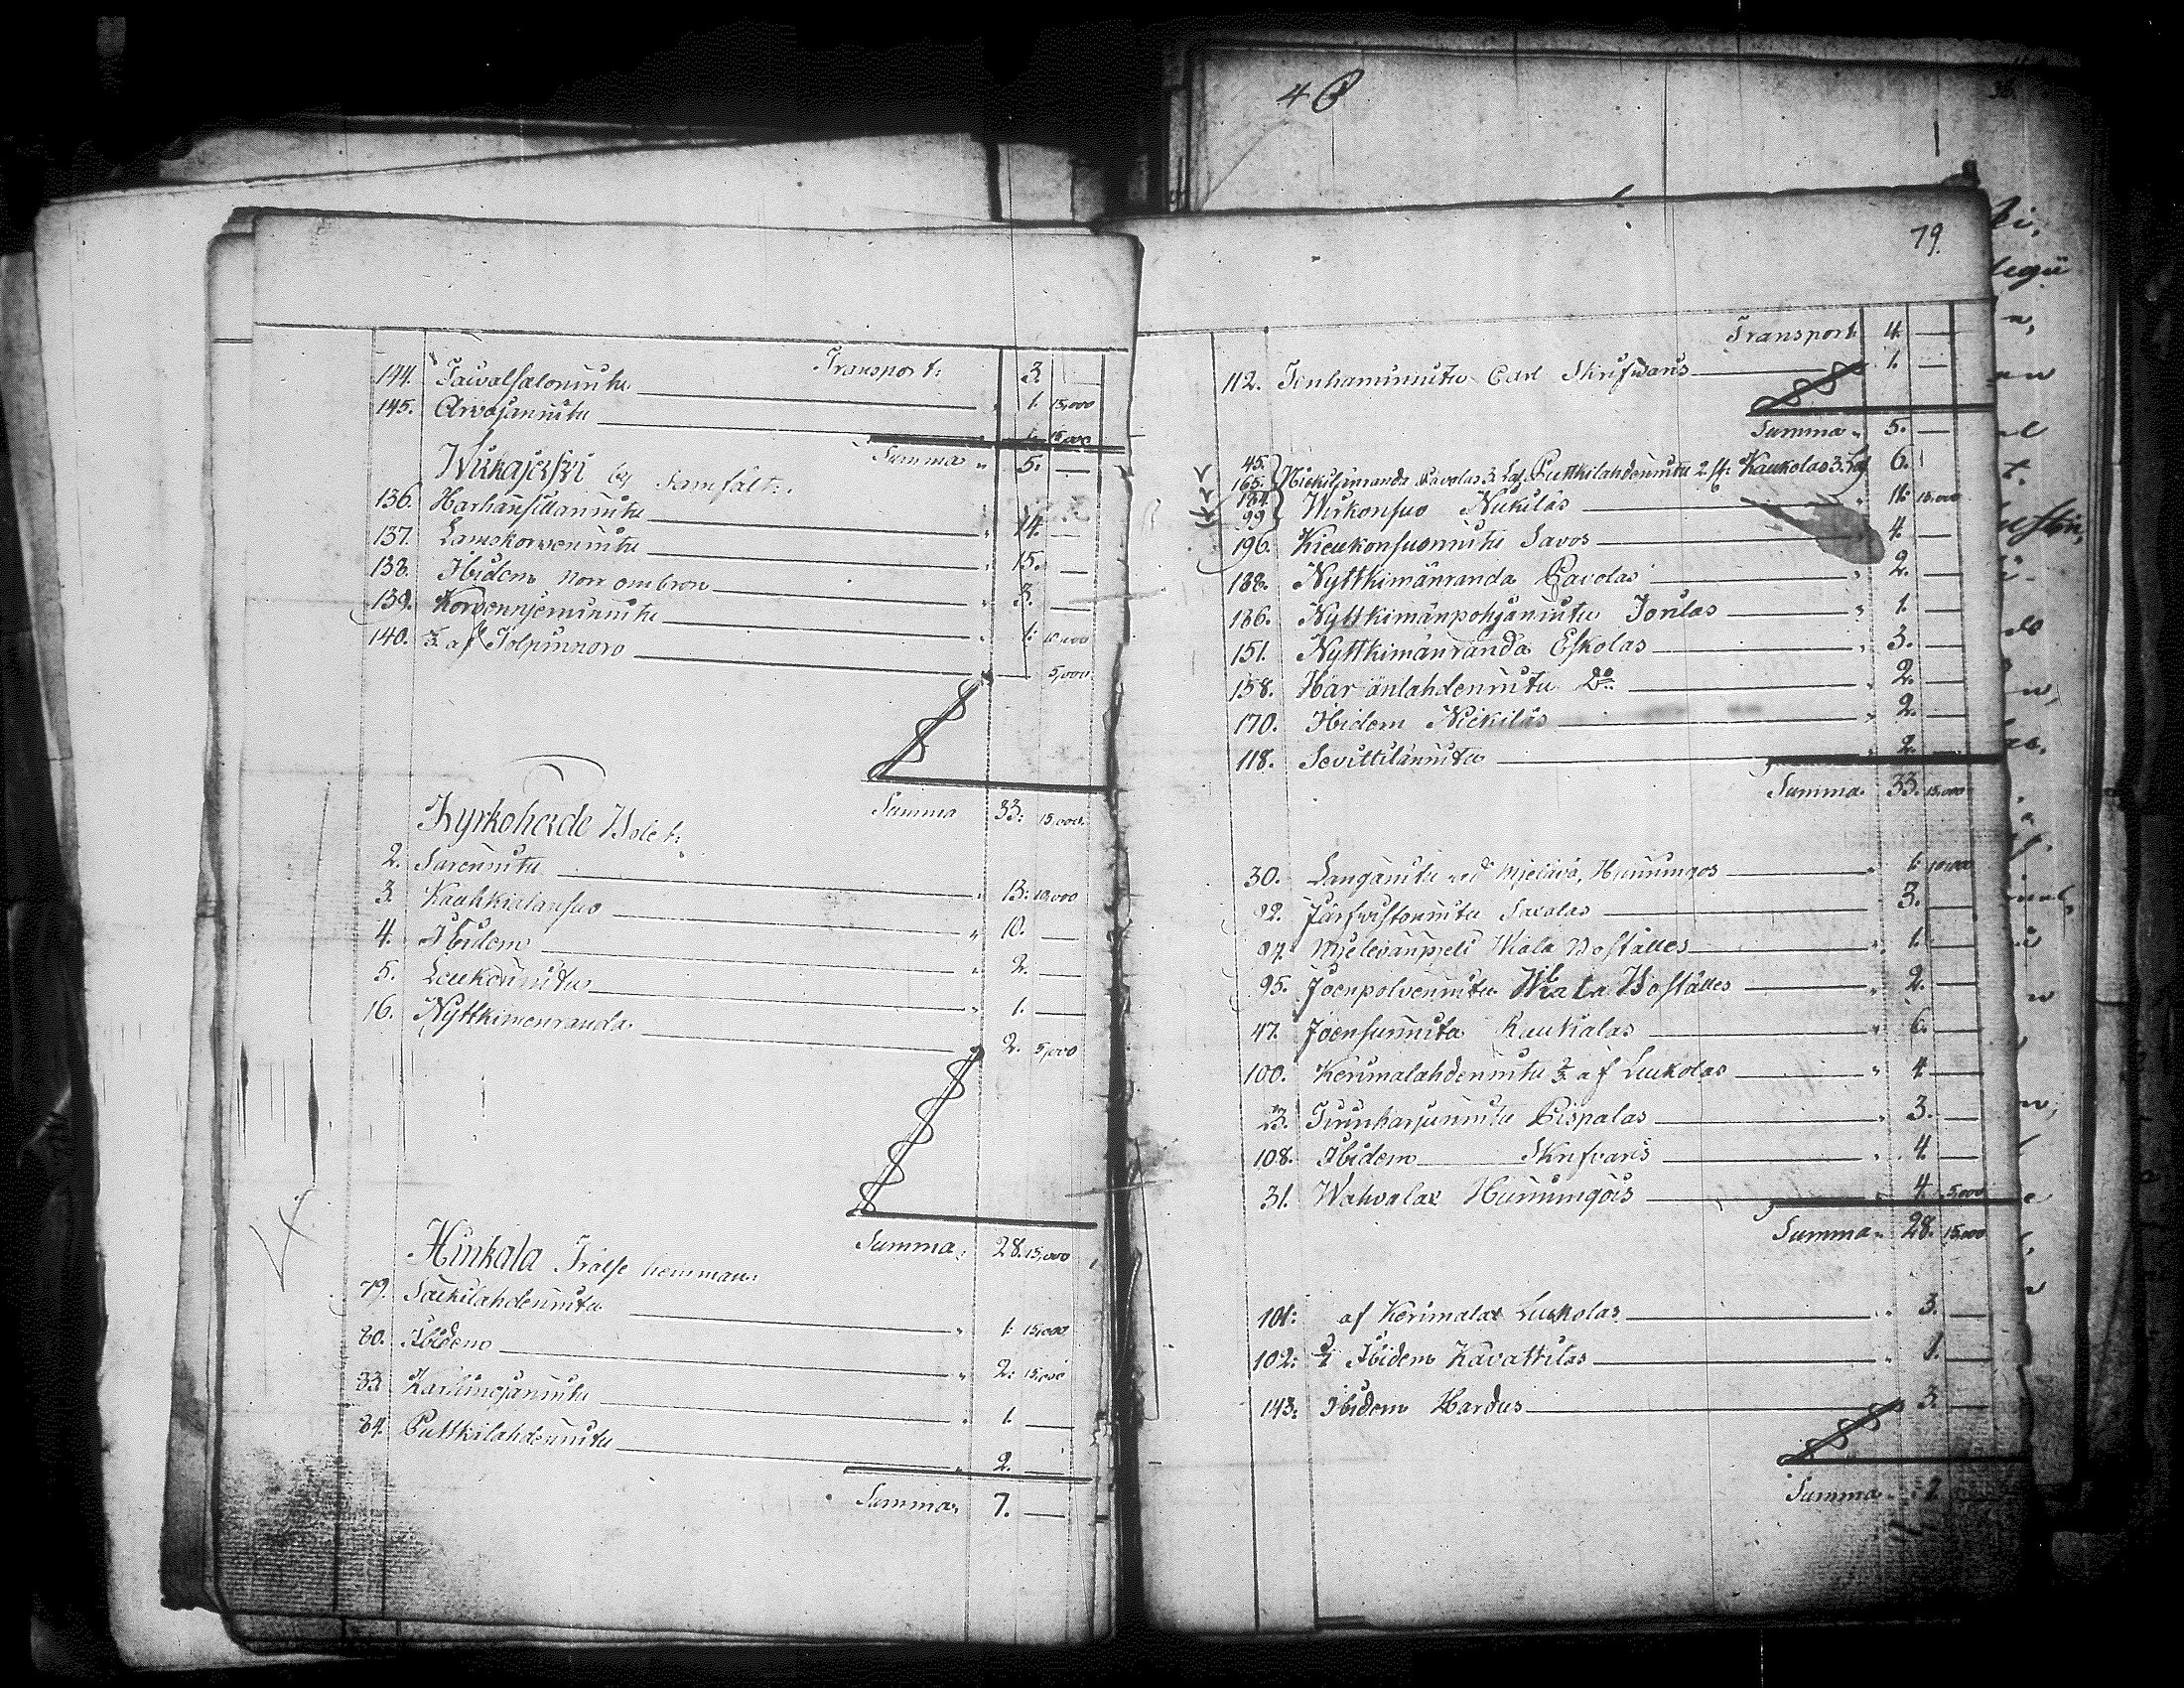 Transport: 3. —
144. Taivalsalonnitu 1. 15,000
145. Arvojannitu 1. 15,000
Summa 5. —
Wuhajerfvi by samfält:
136. Harhansillannitu 14. —
137. Lamskorvennitu 15. —
138. Ibidem norr om bron 3. —
139. Korvennjeminnitu 1. 10,000
140. ½ af Tolpinnoro 5,000
Summa 33. 15,000
Kyrkoherde Bolet:
2. Sarennitu 13. 10,000
3. Kauhkialansuo 10. —
4. Ibidem 2. —
5. Leukonnitu 1. —
16. Nyttkimenranda 2. 5,000
Summa 28. 15,000
Hinkala Frälse hemman
79. Säikilahdennitu 1. 15,000
80. Ibidem 2. 15,000
83. Karhinojannitu 1. —
84. Puttkilahdennitu 2. —
Summa 7. —
4
79.
Transport 4. —
112. Tenhaminnitu Carl Skrifvaris 1. —
Summa 5. —
45.
165. Nickilänranda Pavolas 3. Puttkilahdennitu 2. Kaukolas 3. 6.
184.
99. Wirkonsuo Nickiläs 11. 15,000
196. Kieukonsuonnitu Savos 4. —
188. Nyttkimänranda Pavolas 2. —
186. Nyttkimänpohjannitu Jorilas 1. —
151. Nyttkimänranda Eskolas 3. —
158. Häränlahdennitu Do 2. —
170. Ibidem Nickiläs 2. —
118. Sevittilännitu 2. —
Summa 33. 15,000
30. Langanitu ved Mjelävä, Hunningos 1. 10,000
92. Järfvistonnitu Savolas 3. —
94. Mjelevänpjeli Wiala Boställes 1. —
95. Joenpolvennitu Wiala Boställes 2. —
47. Joensunnitu Raukialas 6. —
100. Kerimalahdennitu ½ af Leukolas 4. —
23. Tiuruharjunnitu Pispalas 3. —
108. Ibidem Skrifvaris 4. —
31. Wahvalax Hunningois 4. 5,000
Summa 28. 15,000
101: af Kerimalax Leukolas 3. —
102: ½ Ibidem Kavattilas 1. —
143: Ibidem Hardus 3. —
Summa 7. —